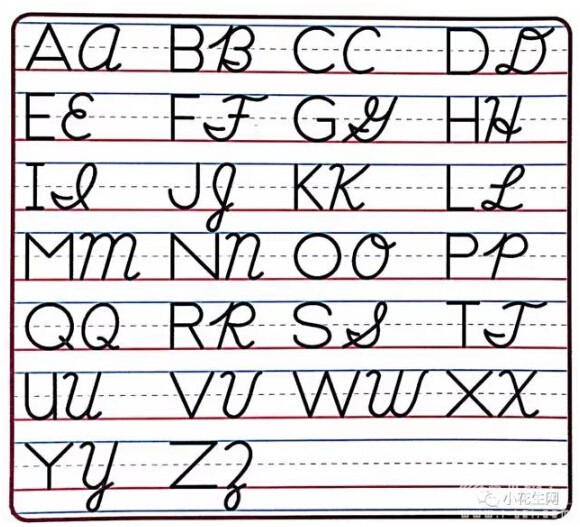 A A B B C C D D
E E F F G G H H
I I J J K K L L
M M N N O O P P
Q Q R R S S T T
U U V V W W X X
Y Y Z Z
小花生网